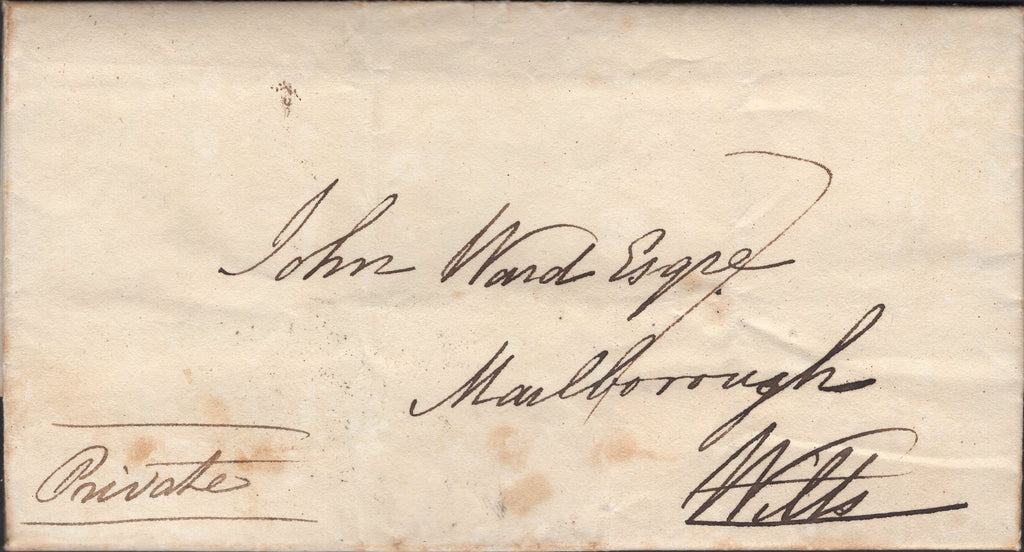 John Ward Esqre
Marlborough
Wilts
Private